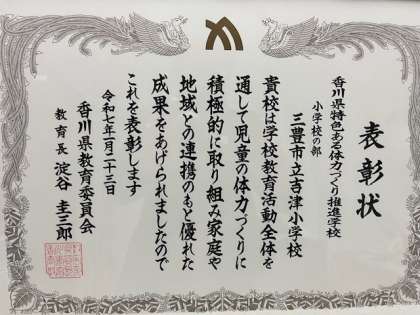 表彰状
香川県特色ある体力づくり推進学校
小学校の部
三豊市立吉津小学校
貴校は学校教育活動全体を
通して児童の体力づくりに
積極的に取り組み家庭や
地域との連携のもと優れた
成果をあげられましたので
これを表彰します
令和七年一月二十三日
香川県教育委員会
教育長 淀谷圭三郎